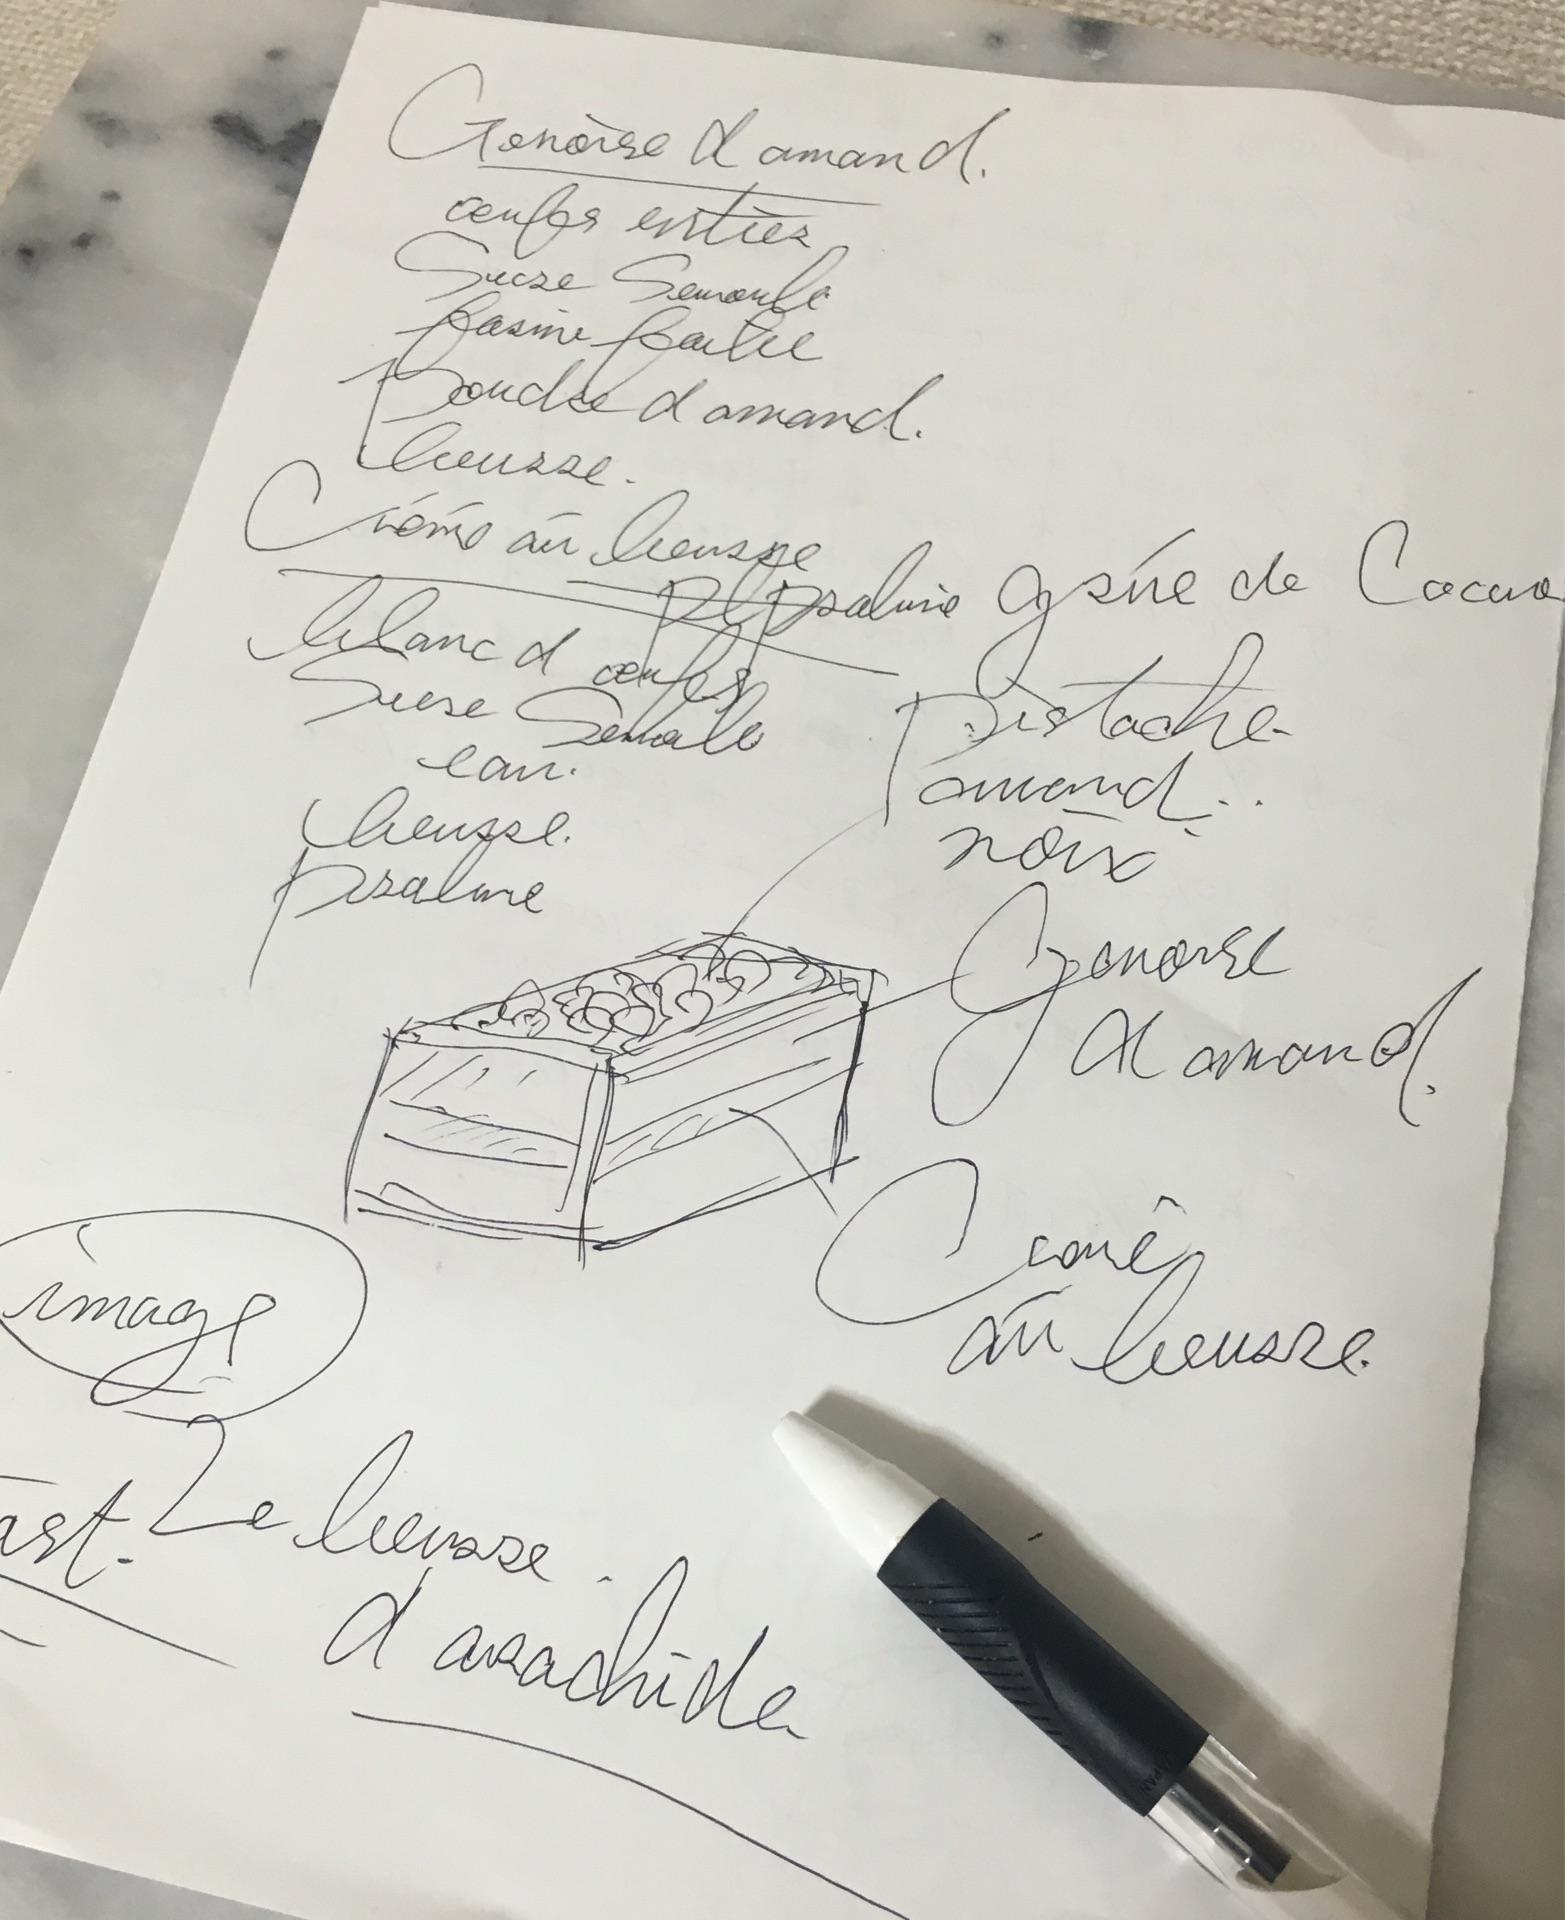 Genoise d amand.
oeufs entiers
Sucre Semoule
farine faible
Poudre d amand.
beurre.
Crème au beurre
Praline grué de Cacao
blanc d oeufs
Sucre Semoule
eau.
beurre.
praline
pistache
amand..
noix
Genoise
d amand.
Crème
au beurre.
image
Le beurre.
d arachide